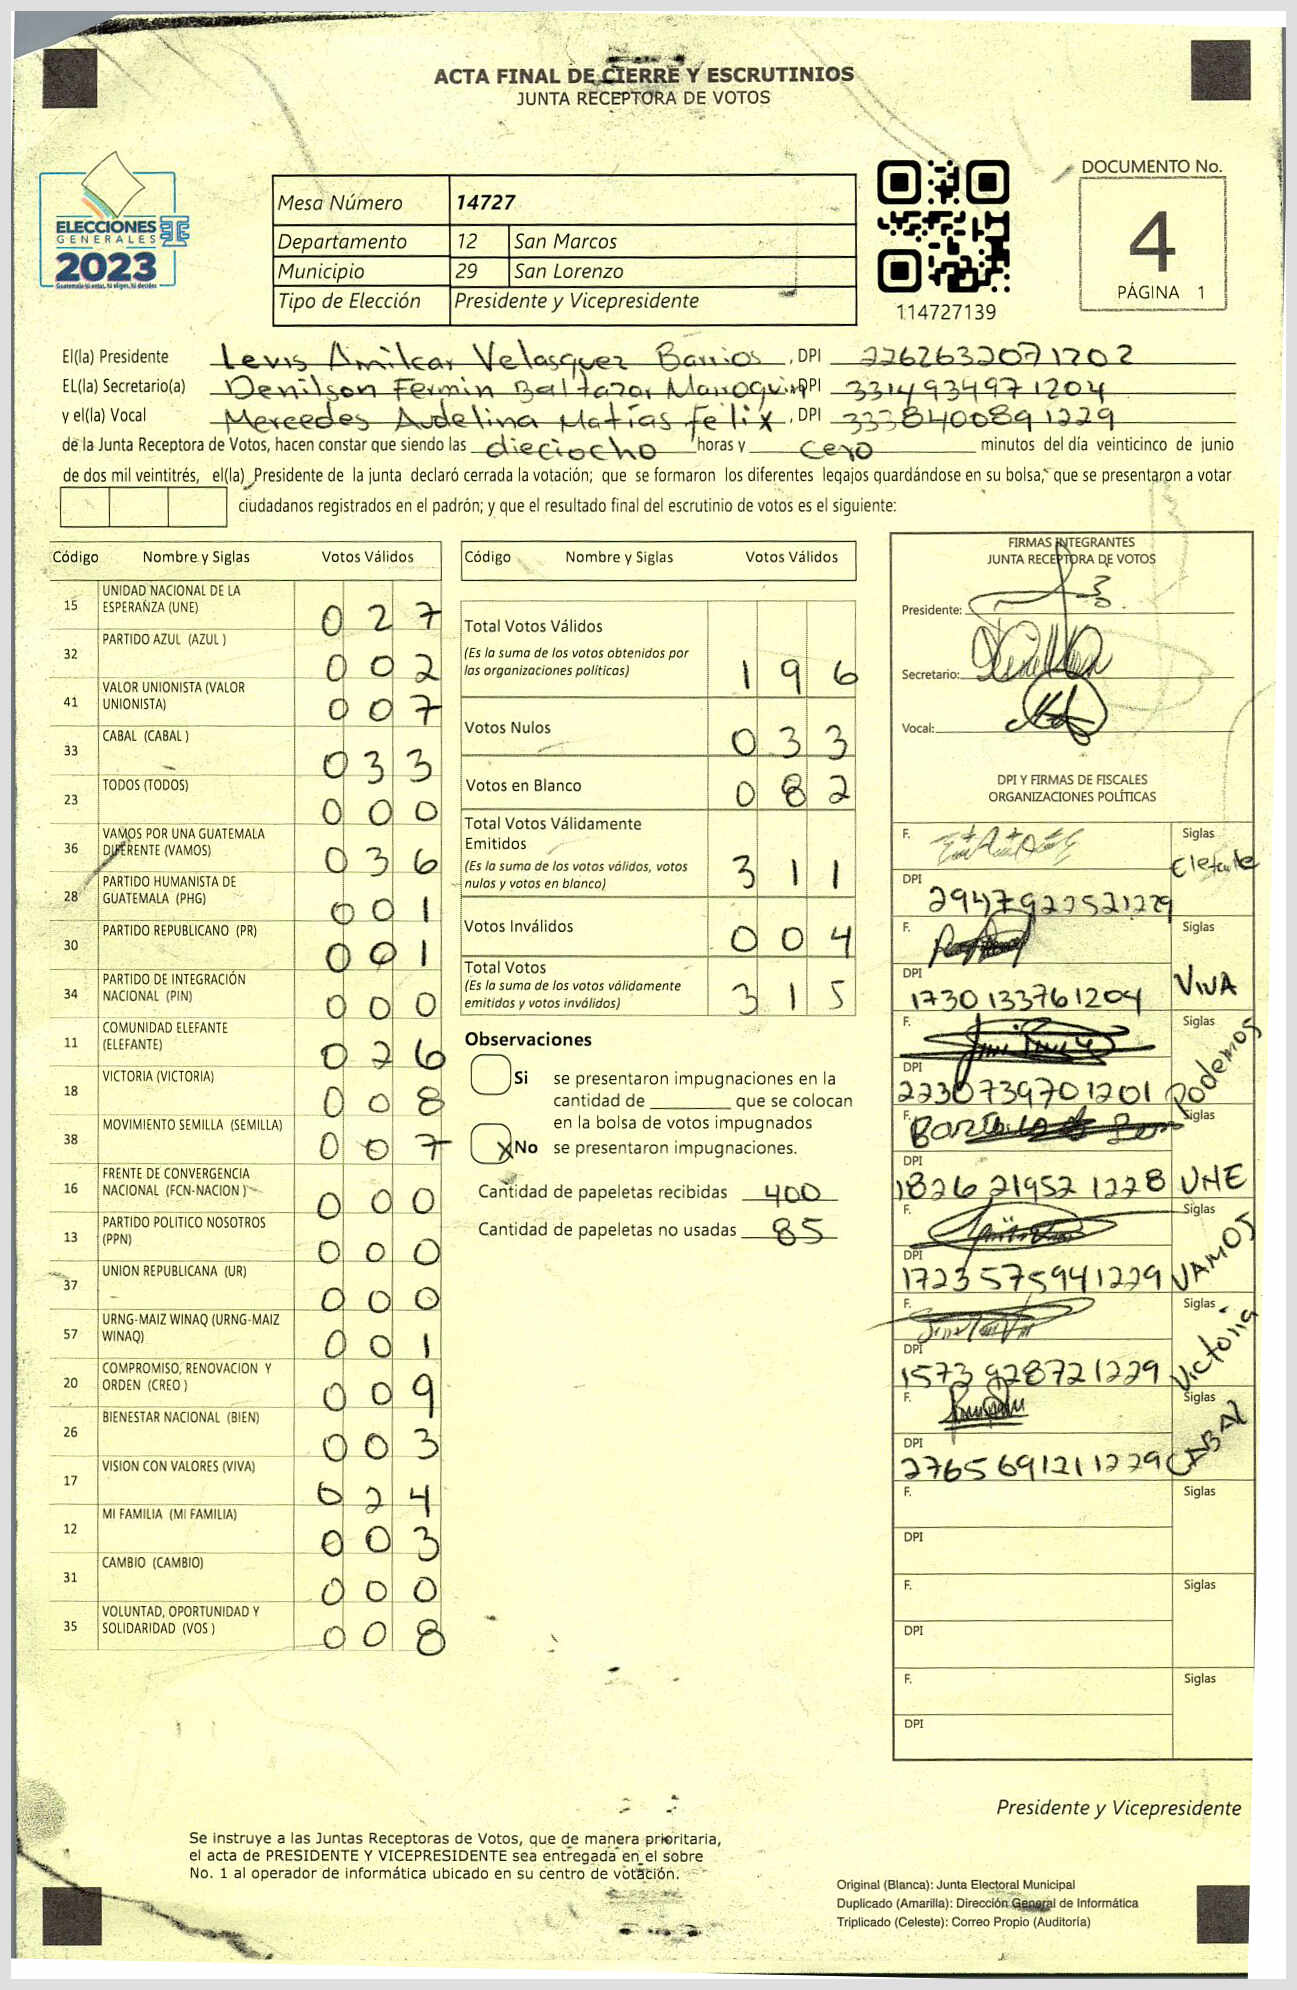 ACTA FINAL DE CIERRE Y ESCRUTINIOS
JUNTA RECEPTORA DE VOTOS
ELECCIONES
GENERALES
2023
Mesa Número 14727
Departamento 12 San Marcos
Municipio 29 San Lorenzo
Tipo de Elección Presidente y Vicepresidente
114727139
DOCUMENTO No.
4
PÁGINA 1
El(la) Presidente Levis Amilcar Velasquez Barrios, DPI 2262632071202
EL(la) Secretario(a) Denilson Fermin Baltazar Marroquin DPI 3314934971204
y el(la) Vocal Mercedes Audelina Matías Felix, DPI 3338400891229
de la Junta Receptora de Votos, hacen constar que siendo las dieciocho horas y cero minutos del día veinticinco de junio
de dos mil veintitrés, el(la) Presidente de la junta declaró cerrada la votación; que se formaron los diferentes legajos guardándose en su bolsa, que se presentaron a votar
ciudadanos registrados en el padrón; y que el resultado final del escrutinio de votos es el siguiente:
Código Nombre y Siglas Votos Válidos
15 UNIDAD NACIONAL DE LA ESPERANZA (UNE) 0 2 7
32 PARTIDO AZUL (AZUL ) 0 0 2
41 VALOR UNIONISTA (VALOR UNIONISTA) 0 0 7
33 CABAL (CABAL ) 0 3 3
23 TODOS (TODOS) 0 0 0
36 VAMOS POR UNA GUATEMALA DIFERENTE (VAMOS) 0 3 6
28 PARTIDO HUMANISTA DE GUATEMALA (PHG) 0 0 1
30 PARTIDO REPUBLICANO (PR) 0 0 1
34 PARTIDO DE INTEGRACIÓN NACIONAL (PIN) 0 0 0
11 COMUNIDAD ELEFANTE (ELEFANTE) 0 2 6
18 VICTORIA (VICTORIA) 0 0 8
38 MOVIMIENTO SEMILLA (SEMILLA) 0 0 7
16 FRENTE DE CONVERGENCIA NACIONAL (FCN-NACION ) 0 0 0
13 PARTIDO POLITICO NOSOTROS (PPN) 0 0 0
37 UNION REPUBLICANA (UR) 0 0 0
57 URNG-MAIZ WINAQ (URNG-MAIZ WINAQ) 0 0 1
20 COMPROMISO, RENOVACION Y ORDEN (CREO ) 0 0 9
26 BIENESTAR NACIONAL (BIEN) 0 0 3
17 VISION CON VALORES (VIVA) 0 2 4
12 MI FAMILIA (MI FAMILIA) 0 0 3
31 CAMBIO (CAMBIO) 0 0 0
35 VOLUNTAD, OPORTUNIDAD Y SOLIDARIDAD (VOS ) 0 0 8
Código Nombre y Siglas Votos Válidos
Total Votos Válidos 1 9 6
(Es la suma de los votos obtenidos por
las organizaciones políticas)
Votos Nulos 0 3 3
Votos en Blanco 0 8 2
Total Votos Válidamente
Emitidos 3 1 1
(Es la suma de los votos válidos, votos
nulos y votos en blanco)
Votos Inválidos 0 0 4
Total Votos 3 1 5
(Es la suma de los votos válidamente
emitidos y votos inválidos)
Observaciones
Si se presentaron impugnaciones en la
cantidad de ________ que se colocan
en la bolsa de votos impugnados
X No se presentaron impugnaciones.
Cantidad de papeletas recibidas 400
Cantidad de papeletas no usadas 85
FIRMAS INTEGRANTES
JUNTA RECEPTORA DE VOTOS
Presidente:
Secretario:
Vocal:
DPI Y FIRMAS DE FISCALES
ORGANIZACIONES POLÍTICAS
F. Siglas Elefante
DPI 2947922521229
F. Siglas VIVA
DPI 1730133761204
F. Siglas Podemos
DPI 2230739701201
F. Siglas UNE
DPI 1826219521228
F. Siglas VAMOS
DPI 1723575941229
F. Siglas Victoria
DPI 1573928721229
F. Siglas CABAL
DPI 2765691211229
F. Siglas
DPI
F. Siglas
DPI
F. Siglas
DPI
Presidente y Vicepresidente
Se instruye a las Juntas Receptoras de Votos, que de manera prioritaria,
el acta de PRESIDENTE Y VICEPRESIDENTE sea entregada en el sobre
No. 1 al operador de informática ubicado en su centro de votación.
Original (Blanca): Junta Electoral Municipal
Duplicado (Amarilla): Dirección General de Informática
Triplicado (Celeste): Correo Propio (Auditoría)